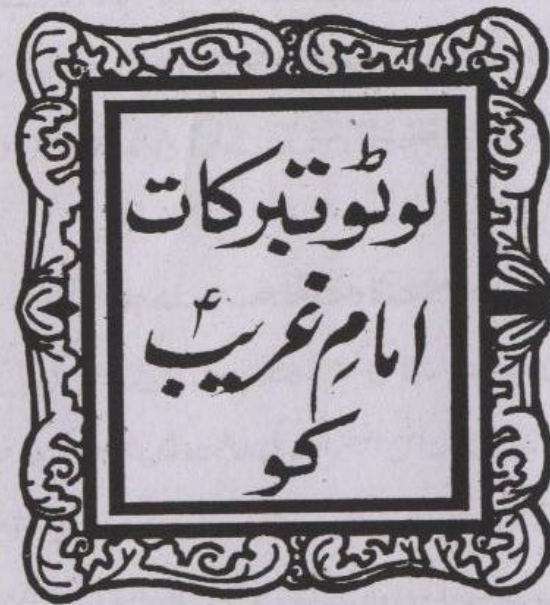 لوٹو تبرکات
امامِ غریبؑ
کو